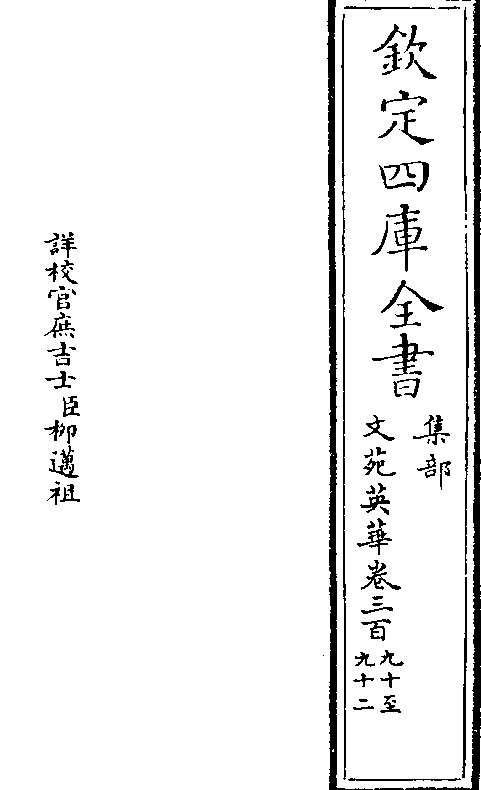 欽定四庫全書
集部
文苑英華卷三百
九十至
九十二
詳校官庶吉士臣柳邁祖